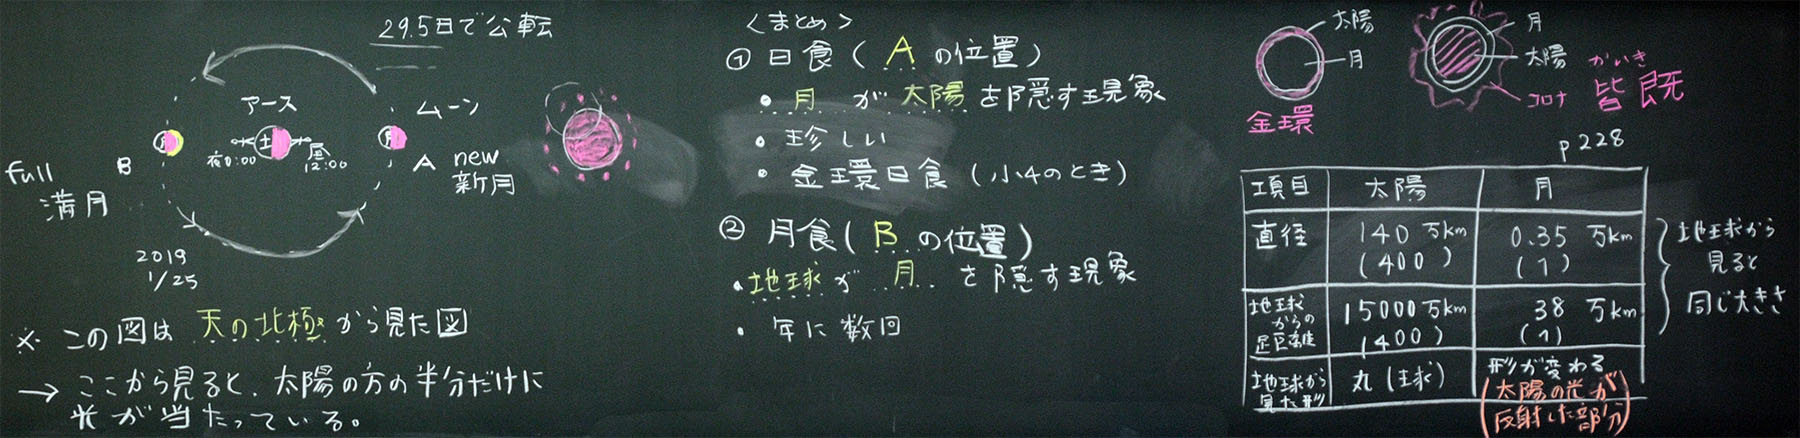 29.5日で公転
アース
ムーン
月
土
月
夜0:00
昼
12:00
B
A
new
新月
full
満月
2019
1/25
※ この図は 天の北極 から見た図
→ ここから見ると、太陽の方の半分だけに
光が当たっている。
<まとめ>
① 日食 ( A の位置)
・月 が 太陽 を隠す現象
・珍しい
・金環日食 (小4のとき)
② 月食 ( B の位置)
・地球が 月 を隠す現象
・年に数回
太陽
月
金環
月
太陽
コロナ
かいき
皆既
p228
項目 太陽 月
直径 140万km 0.35万km
(400) (1)
地球からの距離 15000万km 38万km
(400) (1)
地球から見た形 丸(球) 形が変わる
(太陽の光が
反射した部分)
地球から
見ると
同じ大きさ